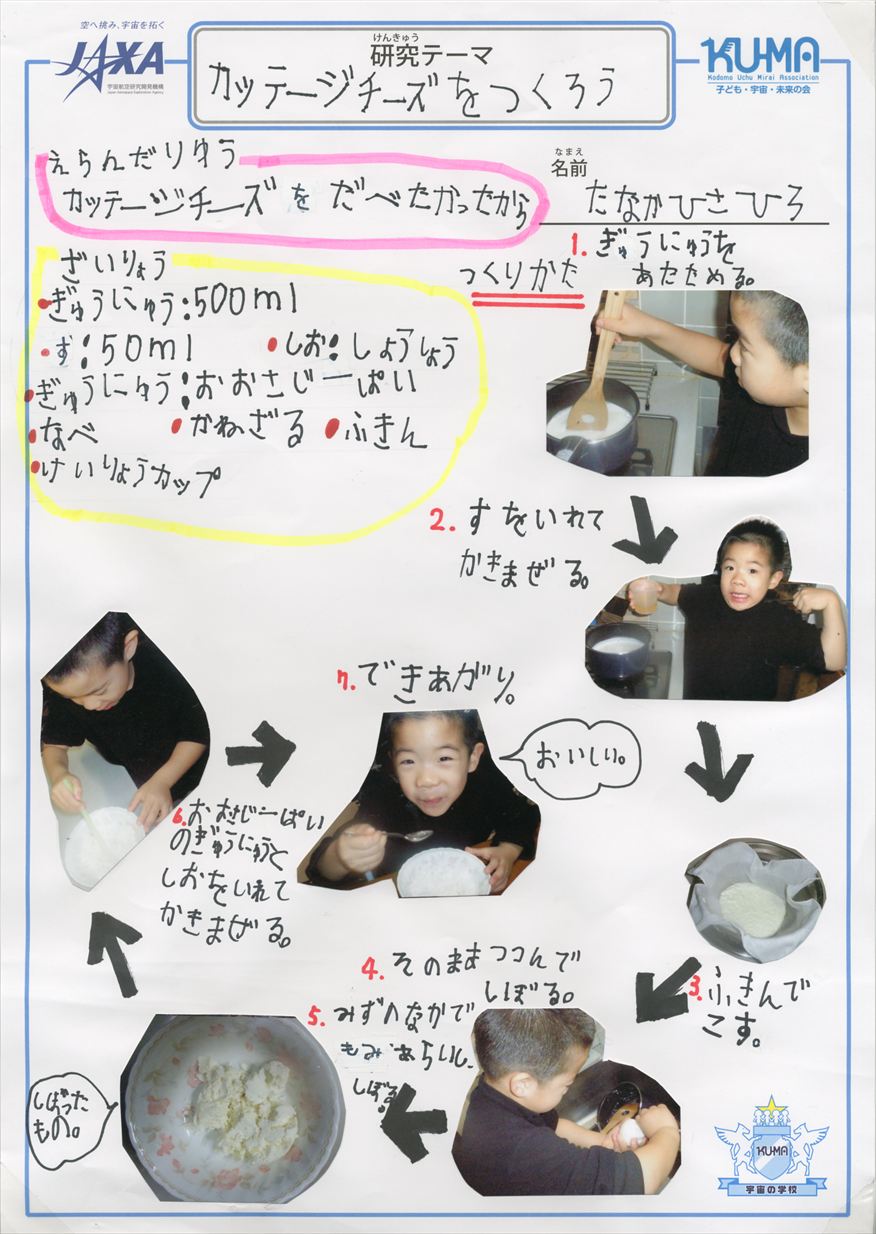 空へ挑み、宇宙を拓く
JAXA
宇宙航空研究開発機構
Japan Aerospace Exploration Agency
けんきゅう
研究テーマ
カッテージチーズをつくろう
KU-MA
Kodomo Uchu Mirai Association
子ども・宇宙・未来の会
えらんだりゆう
カッテージチーズをだべたかったから
なまえ
名前
たなかひさひろ
ざいりょう
・ぎゅうにゅう:500ml
・す:50ml ・しお:しょうしょう
・ぎゅうにゅう:おおさじ一ぱい
・なべ ・かねざる ・ふきん
・けいりょうカップ
つくりかた
1. ぎゅうにゅうを
あたためる。
2. すをいれて
かきまぜる。
3. ふきんで
こす。
4. そのままつつんで
しぼる。
5. みずのなかで
もみあらいし、
しぼる。
しぼった
もの。
6. おおさじ一ぱい
のぎゅうにゅうと
しおをいれて
かきまぜる。
7. できあがり。
おいしい。
KU-MA
宇宙の学校